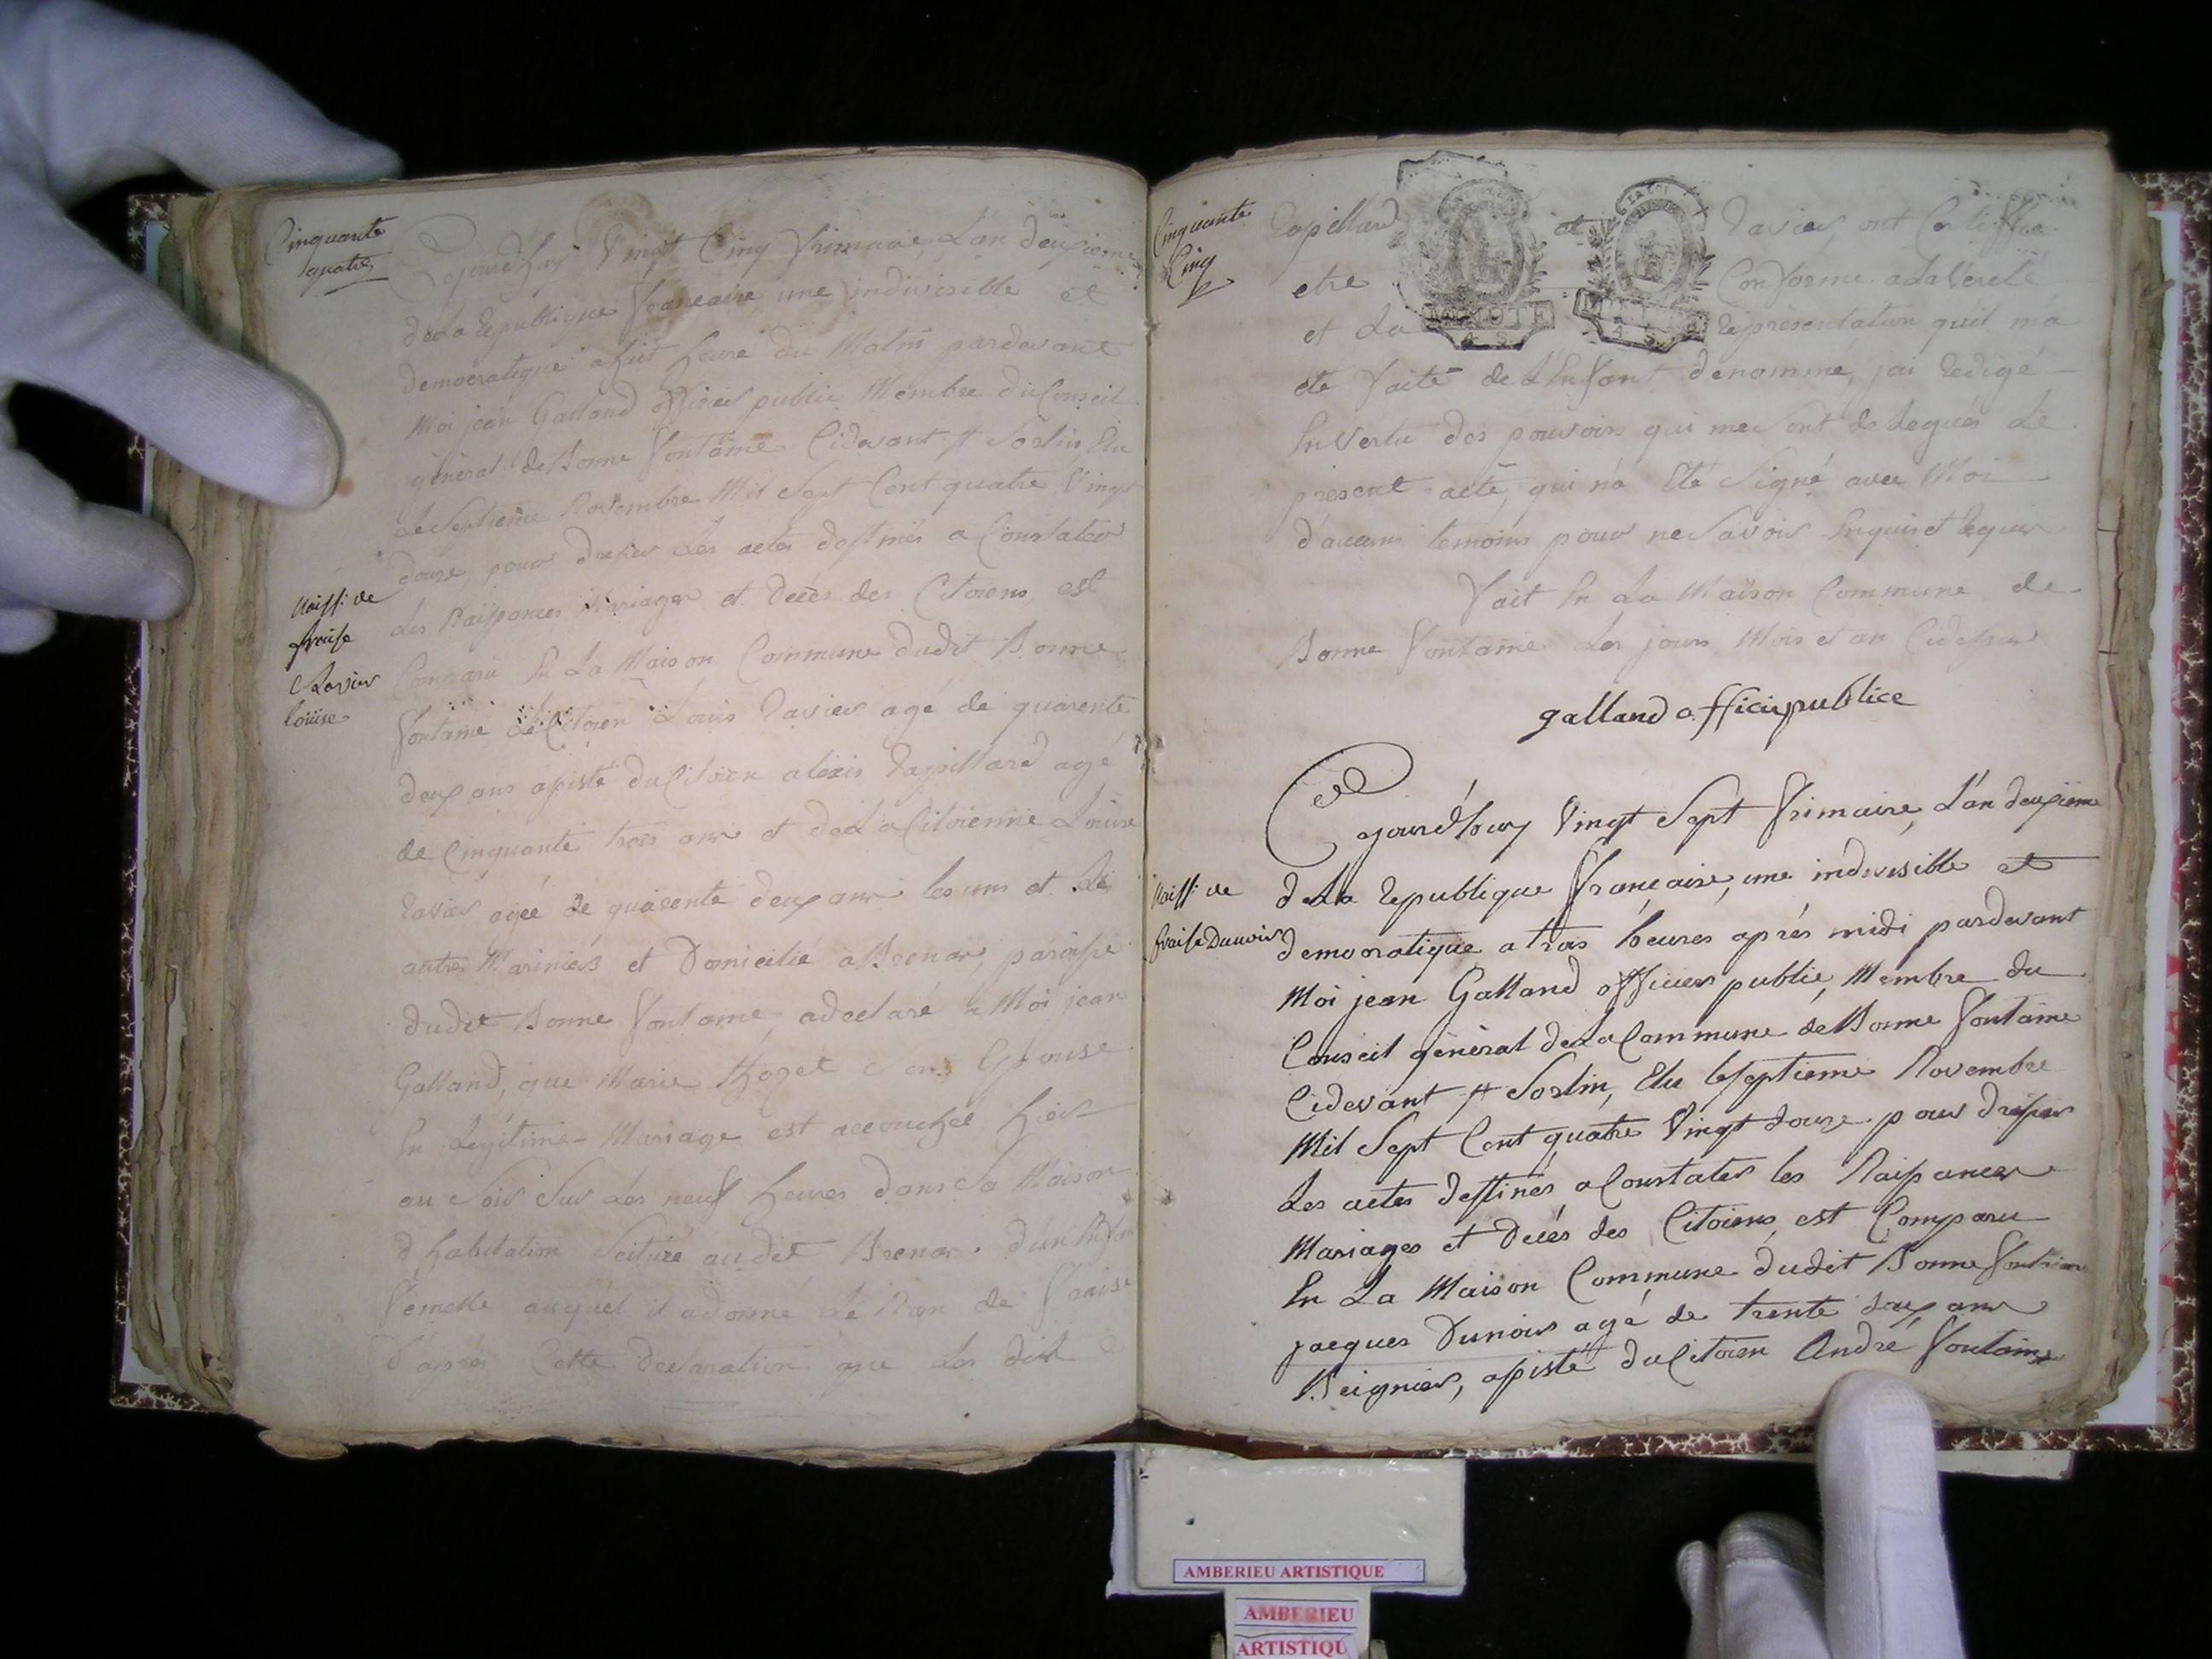 Cinquante
quatre
Cejourd'huy Vingt Cinq frimaire, L'an deuxieme
de La Republique francaise une indivisible et
democratique a huit heure du Matin pardevant
Moi jean Galland officier public Membre du Conseil
général de Bonne fontaine Cidevant st Sorlin, Elu
Le Septieme Novembre Mil Sept Cent quatre Vingt
douze, pour dresser Les actes destinés a Constater
Les Naissances Mariages et Décés des Citoiens est
Comparu En La Maison Commune dudit Bonne
fontaine Le Citoien Louis Ravier agé de quarente
deux ans assisté du Citoien alexis Rapillard agé
de Cinquante trois ans et de La Citoienne Louise
Ravier agée de quarente deux ans les uns et Les
autres Mariniers et Domicilié a Brenas, paroisse
dudit Bonne fontaine, adeclaré a Moi jean
Galland, que Marie son Epouse
En Legitime Mariage est accouchée hier
au Soir Sur Les neuf heures dans Sa Maison
d'habitation Scituée audit Brenas d'un Enfant
femelle auquel il adonné Le Nom de
d'aprés Cette Declaration que Les dits
Naiss: de
Ravier
loüise
Cinquante
Cinq
Rapillard et Ravier, ont Certiffié
etre Conforme a La Verité
et La Représentation quil m'a
été faite de L'Enfant denommé, jai Redigé
En Vertu des pouvoirs qui me Sont délegués Le
présent acte, qui n'a Eté Signé avec Moi
d'aucuns temoins pour ne Savoir Enquis et Requis
fait En La Maison Commune de
Bonne fontaine Les jours, Mois et an Cidessus
galland officier publice
Cejourd'huy Vingt Sept frimaire, L'an deuxieme
de La Republique françaire, une indivisible et
democratique a trois heures aprés midi pardevant
Moi jean Galland officier public, Membre du
Conseil général de La Commune de Bonne fontaine
Cidevant st Sorlin, Elu le Septieme Novembre
Mil Sept Cent quatre Vingt douze pour dresser
Les actes destinés a Constater les Naissances
Mariages et Decés des Citoiens, est Comparu
En La Maison Commune dudit Bonne fontaine
jacques Dunois agé de trente deux ans
Peignier, assisté du Citoien André fontaine
Naiss: de
Dunois
LA LOI
AMBERIEU ARTISTIQUE
AMBERIEU
ARTISTIQU